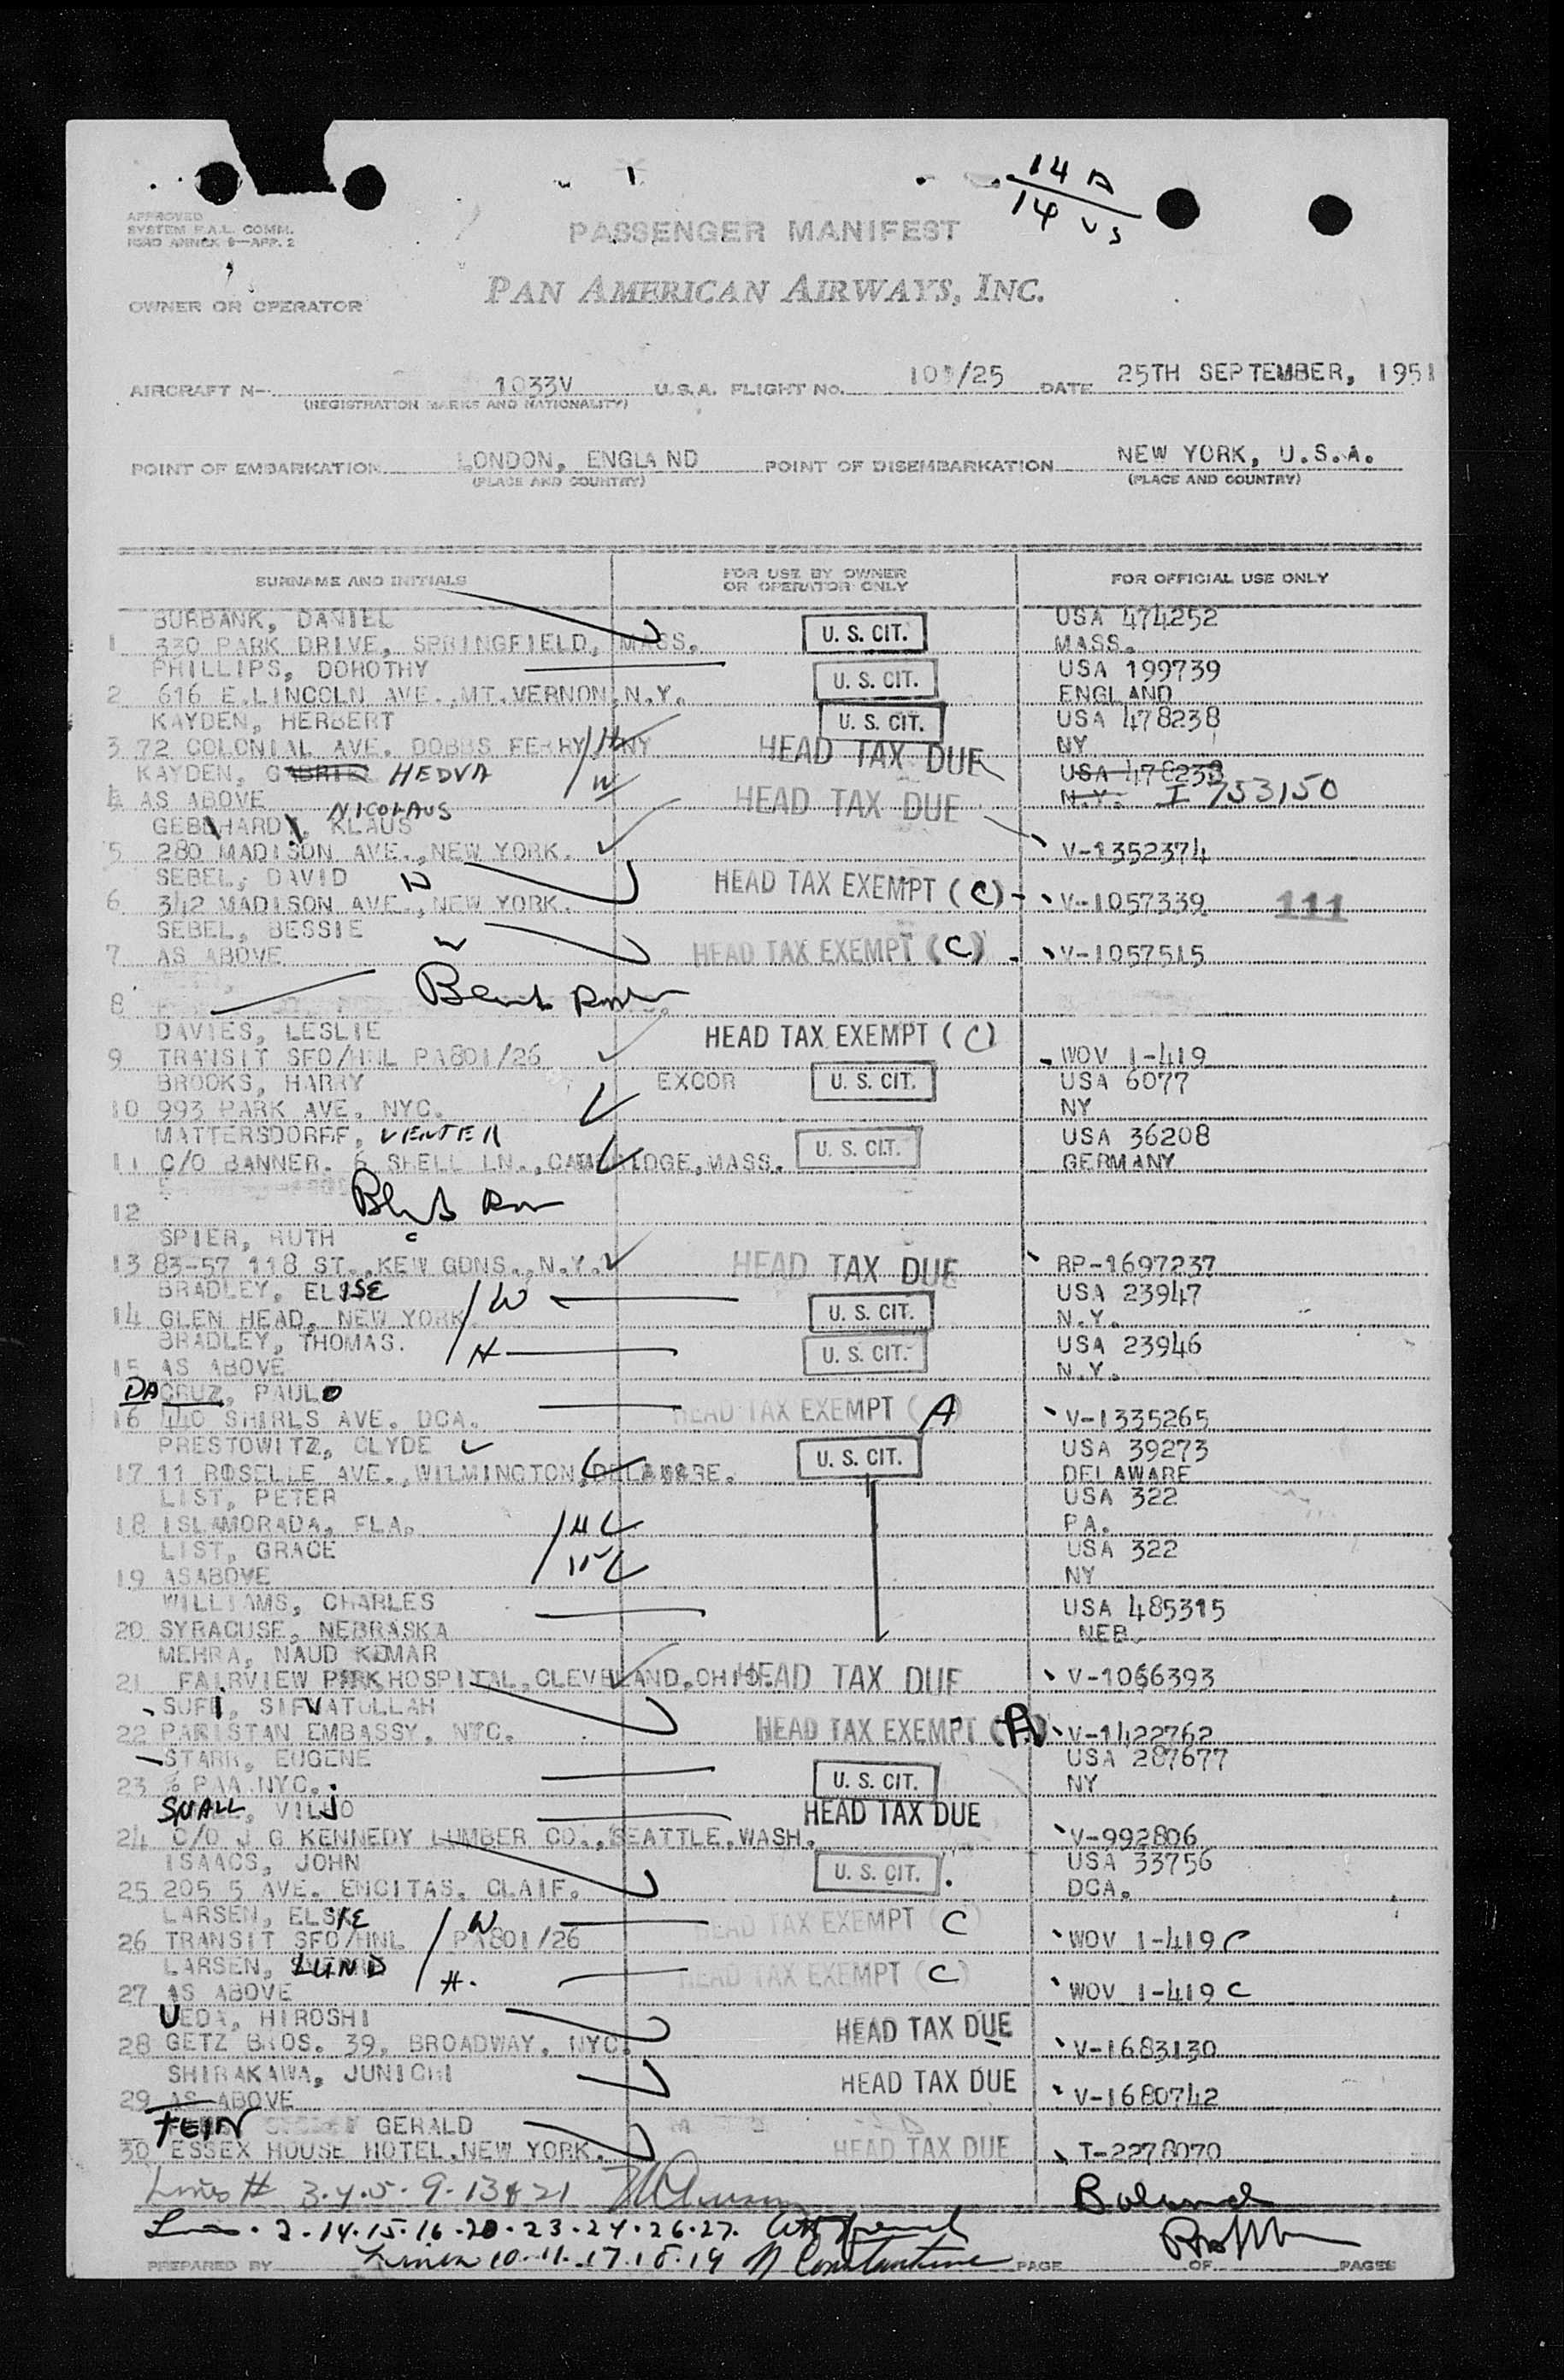 14 A
14 US
APPROVED
SYSTEM F.A.L. COMM.
ICAO ANNEX 9—APP. 2
PASSENGER MANIFEST
PAN AMERICAN AIRWAYS, INC.
OWNER OR OPERATOR
AIRCRAFT N-- 1033V U.S.A. FLIGHT NO. 101/25 DATE 25TH SEPTEMBER, 1951
(REGISTRATION MARKS AND NATIONALITY)
POINT OF EMBARKATION LONDON, ENGLAND POINT OF DISEMBARKATION NEW YORK, U.S.A.
(PLACE AND COUNTRY) (PLACE AND COUNTRY)
SURNAME AND INITIALS FOR USE BY OWNER OR OPERATOR ONLY FOR OFFICIAL USE ONLY
BURBANK, DANIEL U. S. CIT. USA 474252
1 330 PARK DRIVE, SPRINGFIELD, MASS. MASS.
PHILLIPS, DOROTHY U. S. CIT. USA 199739
2 616 E.LINCOLN AVE.,MT.VERNON,N.Y. ENGLAND
KAYDEN, HERBERT U. S. CIT. USA 478238
3 72 COLONIAL AVE. DOBBS FERRY, NY H HEAD TAX DUE NY
KAYDEN, HEDVA W USA 478238
4 AS ABOVE HEAD TAX DUE N.Y. I 753150
NICOLAUS
GEBHARD, KLAUS
5 280 MADISON AVE.,NEW YORK. V-1352374
SEBEL, DAVID HEAD TAX EXEMPT (C)
6 342 MADISON AVE.,NEW YORK. V-1057339 111
SEBEL, BESSIE W HEAD TAX EXEMPT (C)
7 AS ABOVE V-1057515
8
DAVIES, LESLIE HEAD TAX EXEMPT (C)
9 TRANSIT SFO/HNL PA801/26 WOV 1-419
BROOKS, HARRY EXCOR U. S. CIT. USA 6077
10 993 PARK AVE. NYC. NY
MATTERSDORFF, U. S. CIT. USA 36208
11 C/O BANNER. 6 SHELL LN.,CAMBRIDGE,MASS. GERMANY
12
SPIER, RUTH
13 83-57 118 ST.,KEW GDNS.,N.Y. HEAD TAX DUE RP-1697237
BRADLEY, ELISE W USA 23947
14 GLEN HEAD, NEW YORK U. S. CIT. N.Y.
BRADLEY, THOMAS. H U. S. CIT. USA 23946
15 AS ABOVE N.Y.
DACRUZ, PAULO HEAD TAX EXEMPT (A)
16 440 SHIRLS AVE. DCA. V-1335265
PRESTOWITZ, CLYDE U. S. CIT. USA 39273
17 11 ROSELLE AVE.,WILMINGTON,DELAWARE. DELAWARE
LIST, PETER USA 322
18 ISLAMORADA, FLA. H PA.
LIST, GRACE W USA 322
19 ASABOVE NY
WILLIAMS, CHARLES USA 485315
20 SYRACUSE, NEBRASKA NEB.
MEHRA, NAUD KUMAR
21 FAIRVIEW PARK HOSPITAL,CLEVELAND,OHIO. HEAD TAX DUE V-1066393
SUFI, SIFVATULLAH
22 PAKISTAN EMBASSY, NYC. HEAD TAX EXEMPT (A) V-1422762
STARK, EUGENE USA 287677
23 % PAA.NYC. U. S. CIT. NY
SNALL, VILJO HEAD TAX DUE
24 C/O J G KENNEDY LUMBER CO.,SEATTLE.WASH. V-992806
ISAACS, JOHN U. S. CIT. USA 33756
25 205 5 AVE. ENCITAS. CLAIF. DCA.
LARSEN, ELSKE W HEAD TAX EXEMPT (C)
26 TRANSIT SFO/HNL PA801/26 WOV 1-419 C
LARSEN, LUND H. HEAD TAX EXEMPT (C)
27 AS ABOVE WOV 1-419 C
UEDA, HIROSHI HEAD TAX DUE
28 GETZ BROS. 39, BROADWAY, NYC. V-1683130
SHIRAKAWA, JUNICHI HEAD TAX DUE
29 AS ABOVE V-1680742
FEIN GERALD
30 ESSEX HOUSE HOTEL,NEW YORK. HEAD TAX DUE T-2278070
Lines # 3.4.5.9.13 & 21
2.14.15.16.20.23.24.26.27.
PREPARED BY Lines 10.11.17.18.19 N Constantine PAGE OF PAGES